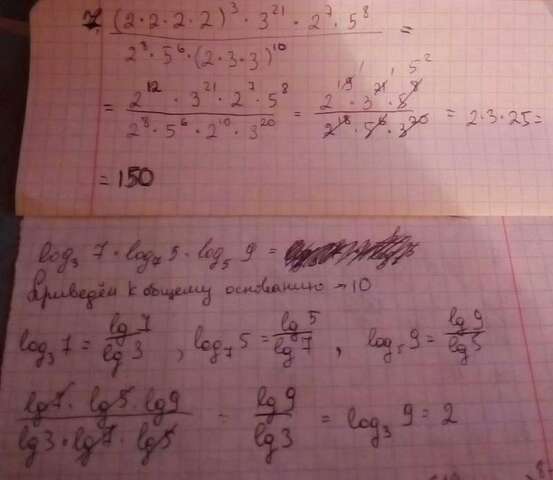 7. (2·2·2·2)³ · 3²¹ · 2⁷ · 5⁸ / 2⁸ · 5⁶ · (2·3·3)¹⁰ =
= 2¹² · 3²¹ · 2⁷ · 5⁸ / 2⁸ · 5⁶ · 2¹⁰ · 3²⁰ = 2¹⁹ · 3²¹ · 5⁸ / 2¹⁸ · 5⁶ · 3²⁰ = 2·3·25=
= 150
log₃ 7 · log₇ 5 · log₅ 9 =
Приведём к общему основанию → 10
log₃ 7 = lg 7 / lg 3 , log₇ 5 = lg 5 / lg 7 , log₅ 9 = lg 9 / lg 5
lg 7 · lg 5 · lg 9 / lg 3 · lg 7 · lg 5 = lg 9 / lg 3 = log₃ 9 = 2